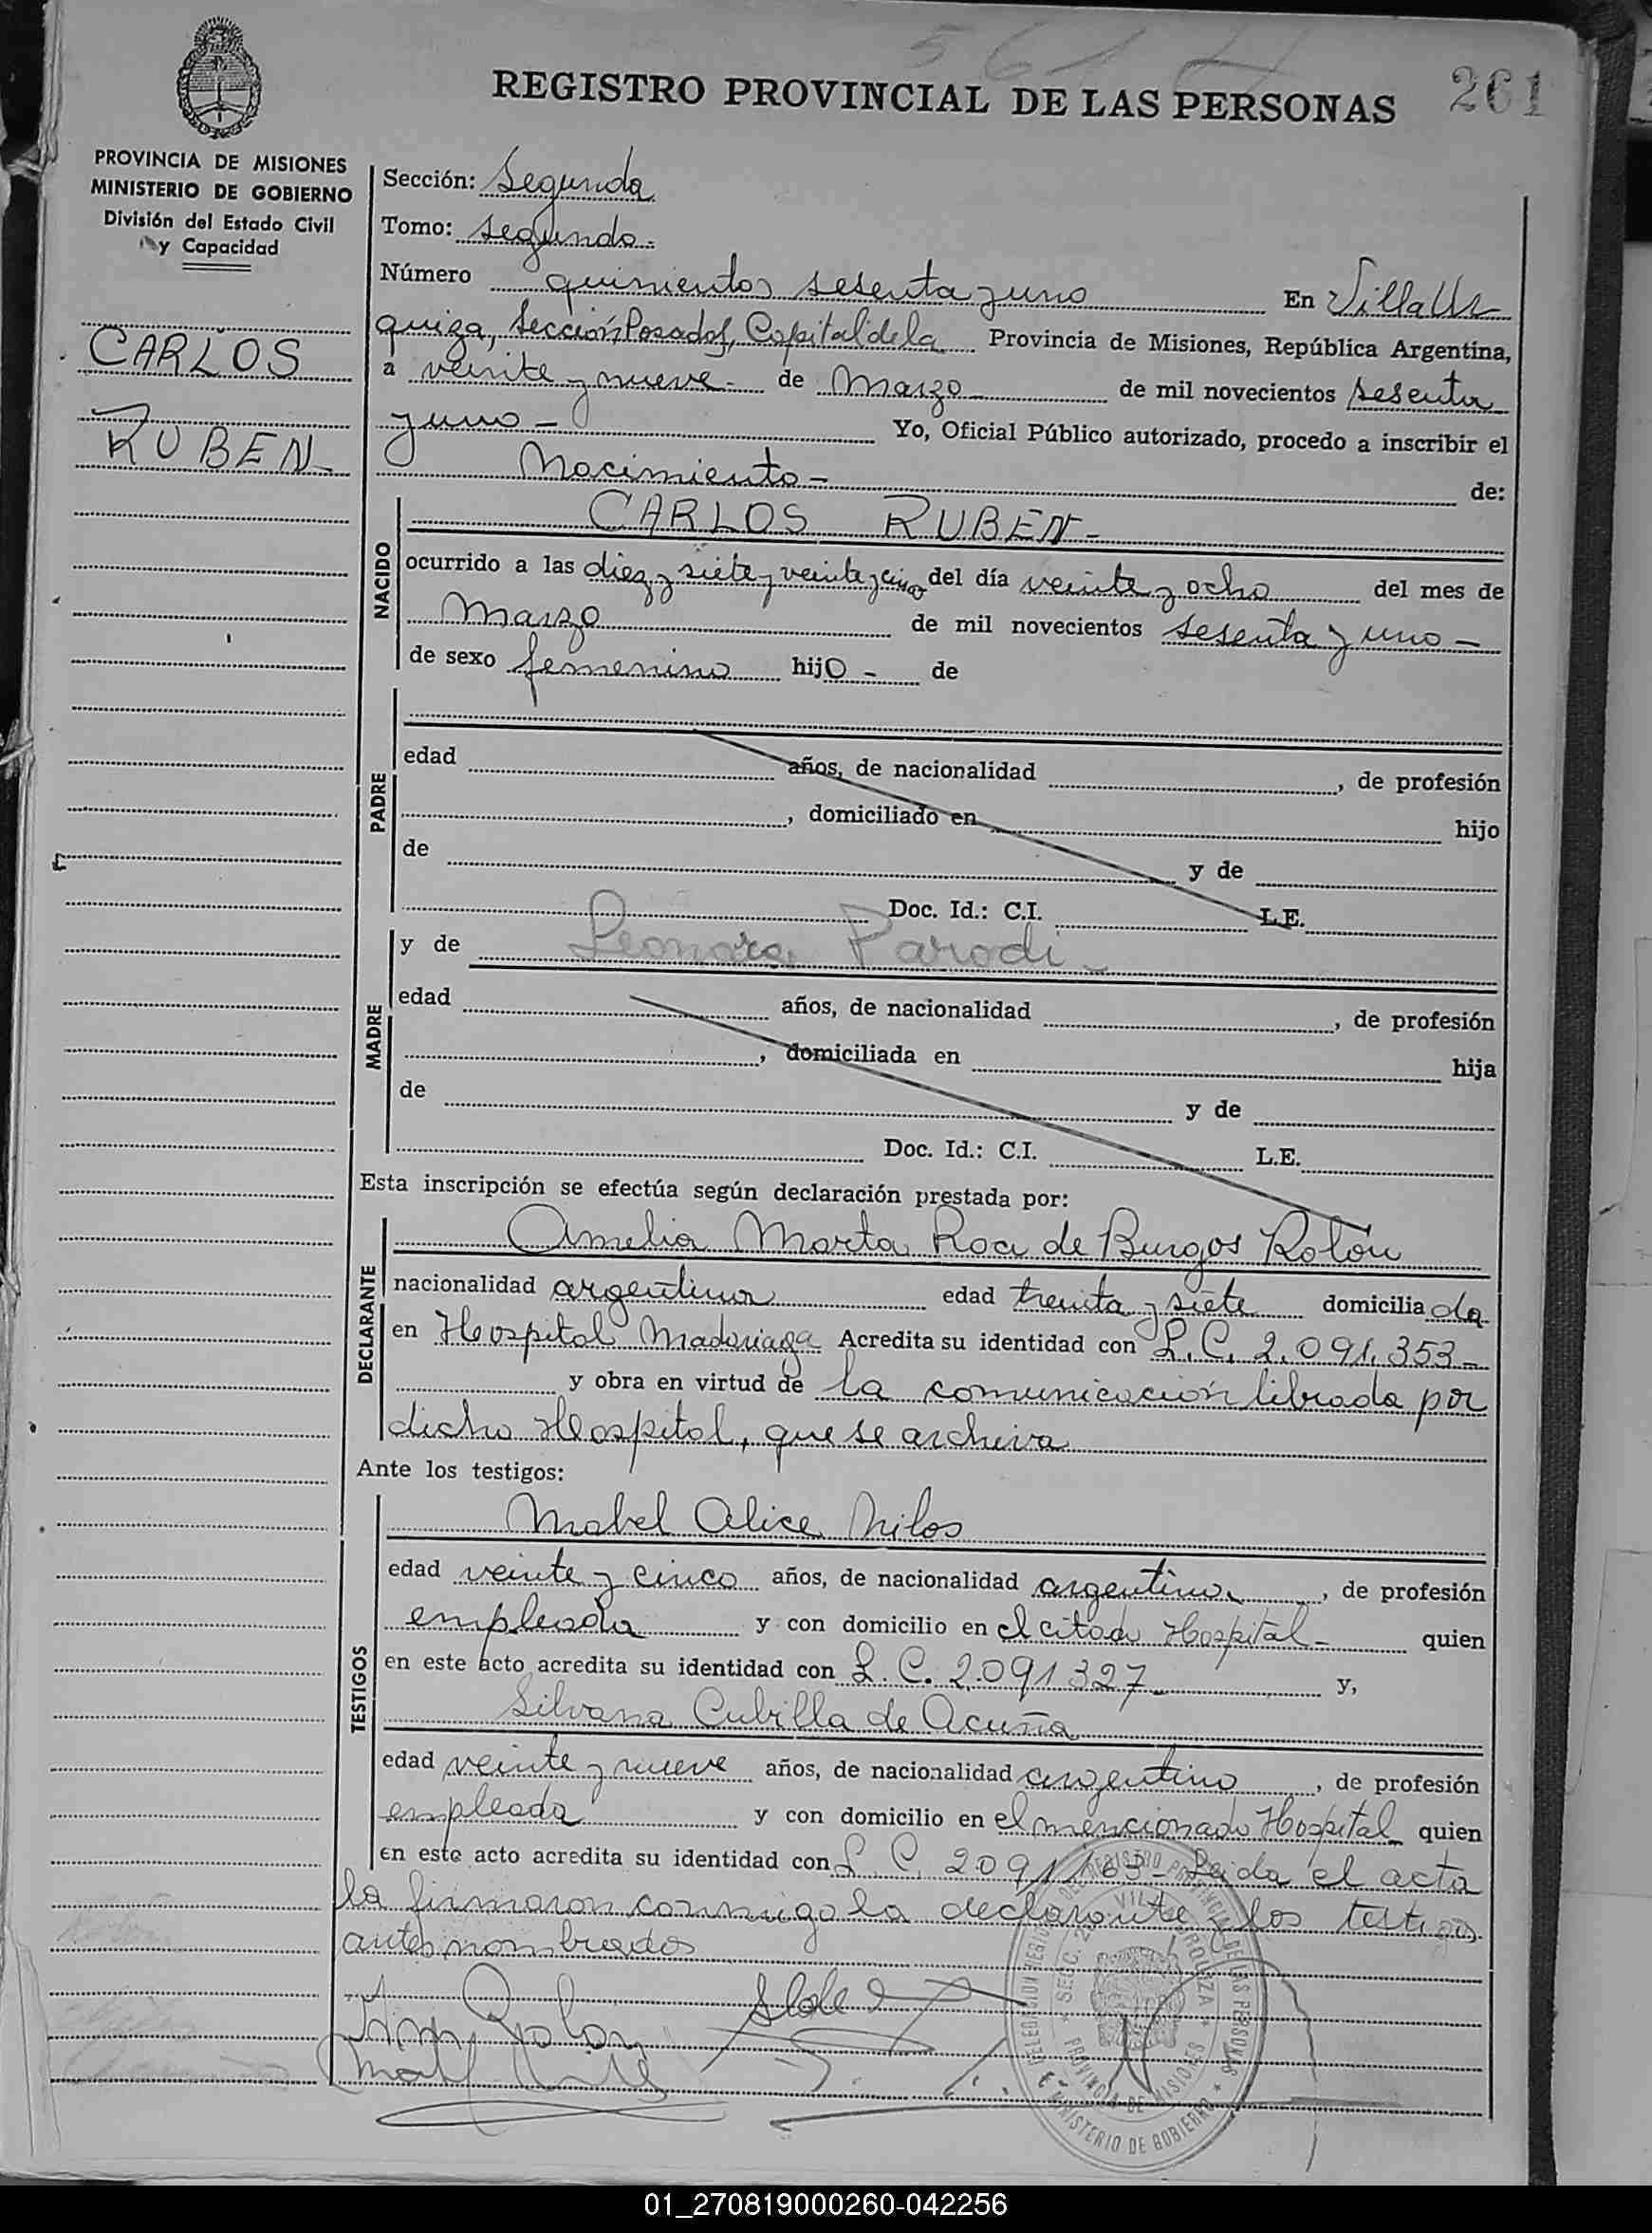 561
261
REGISTRO PROVINCIAL DE LAS PERSONAS
PROVINCIA DE MISIONES
MINISTERIO DE GOBIERNO
División del Estado Civil
y Capacidad
CARLOS
RUBEN
Sección: Segunda
Tomo: segundo.
Número quinientos sesenta y uno En Villa Ur
quiza, Sección Posadas, Capital de la Provincia de Misiones, República Argentina,
a veinte y nueve - de Marzo de mil novecientos sesenta
y uno - Yo, Oficial Público autorizado, procedo a inscribir el
Nacimiento - de:
NACIDO
CARLOS RUBEN -
ocurrido a las diez y siete y veinte y cinco del día veinte y ocho del mes de
Marzo de mil novecientos sesenta y uno -
de sexo femenino hijo - de
PADRE
edad años, de nacionalidad , de profesión
, domiciliado en hijo
de y de
Doc. Id.: C.I. L.E.
MADRE
y de Leonora Parodi -
edad años, de nacionalidad , de profesión
, domiciliada en hija
de y de
Doc. Id.: C.I. L.E.
Esta inscripción se efectúa según declaración prestada por:
DECLARANTE
Amelia Marta Roa de Burgos Rolón
nacionalidad argentina edad treinta y siete domiciliada
en Hospital Madariaga Acredita su identidad con L.C. 2.091.353 -
y obra en virtud de la comunicación librada por
dicho Hospital, que se archiva
Ante los testigos:
TESTIGOS
Mabel Alice Milos
edad veinte y cinco años, de nacionalidad argentina , de profesión
empleada y con domicilio en el citado Hospital - quien
en este acto acredita su identidad con L.C. 2.091327 - y,
Silvana Cubilla de Acuña
edad veinte y nueve años, de nacionalidad argentina , de profesión
empleada y con domicilio en el mencionado Hospital quien
en este acto acredita su identidad con L.C. 2091163 - Leida el acta
la firmaron conmigo la declarante y los testigos
antes nombrados
REGISTRO PROVINCIAL DE LAS PERSONAS
MINISTERIO DE GOBIERNO
PROVINCIA DE MISIONES
01_270819000260-042256